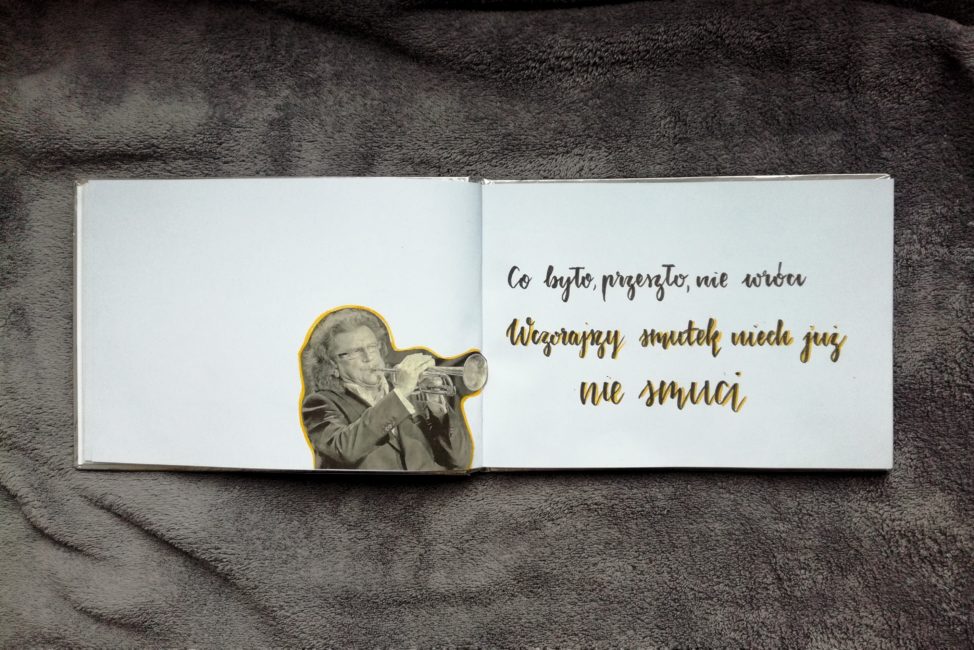 Co było, przeszło, nie wróci
Wczorajszy smutek niech już
nie smuci